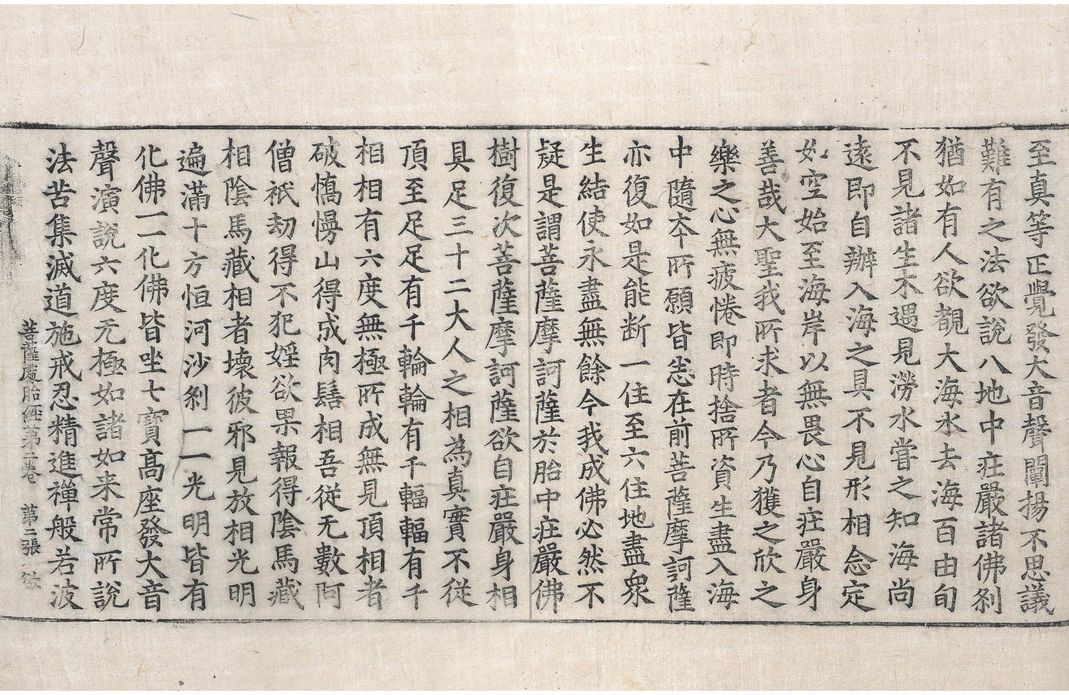 至真等正覺發大音聲闡揚不思議
難有之法欲說八地中莊嚴諸佛刹
猶如有人欲覩大海水去海百由旬
不見諸生木遇見澇水嘗之知海尚
遠即自辦入海之具不見形相念定
如空始至海岸以無畏心自莊嚴身
善哉大聖我所求者今乃獲之欣之
樂之心無疲惓即時捨所資生盡入海
中隨夲所願皆悉在前菩薩摩訶薩
亦復如是能断一住至六住地盡衆
生結使永盡無餘今我成佛必然不
疑是謂菩薩摩訶薩於胎中莊嚴佛
樹復次菩薩摩訶薩欲自莊嚴身相
具足三十二大人之相為真實不從
頂至足足有千輪輪有千輻輻有千
相相有六度無極所成無見頂相者
破憍慢山得成肉髻相吾從无數阿
僧祇劫得不犯婬欲果報得陰馬藏
相陰馬藏相者壞彼邪見放相光明
遍滿十方恒河沙刹一一光明皆有
化佛一一化佛皆坐七寶高座發大音
聲演說六度无極如諸如来常所說
法苦集滅道施戒忍精進禪般若波
菩薩處胎經第二卷 第二張